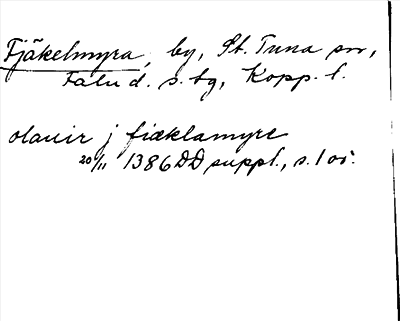 Fjäkelmyra, by, St. Tuna sn,
Falu d. s. tg, Kopp. l.
olauir j fiæklamyre
20/11 1386 DD suppl., s. 100.